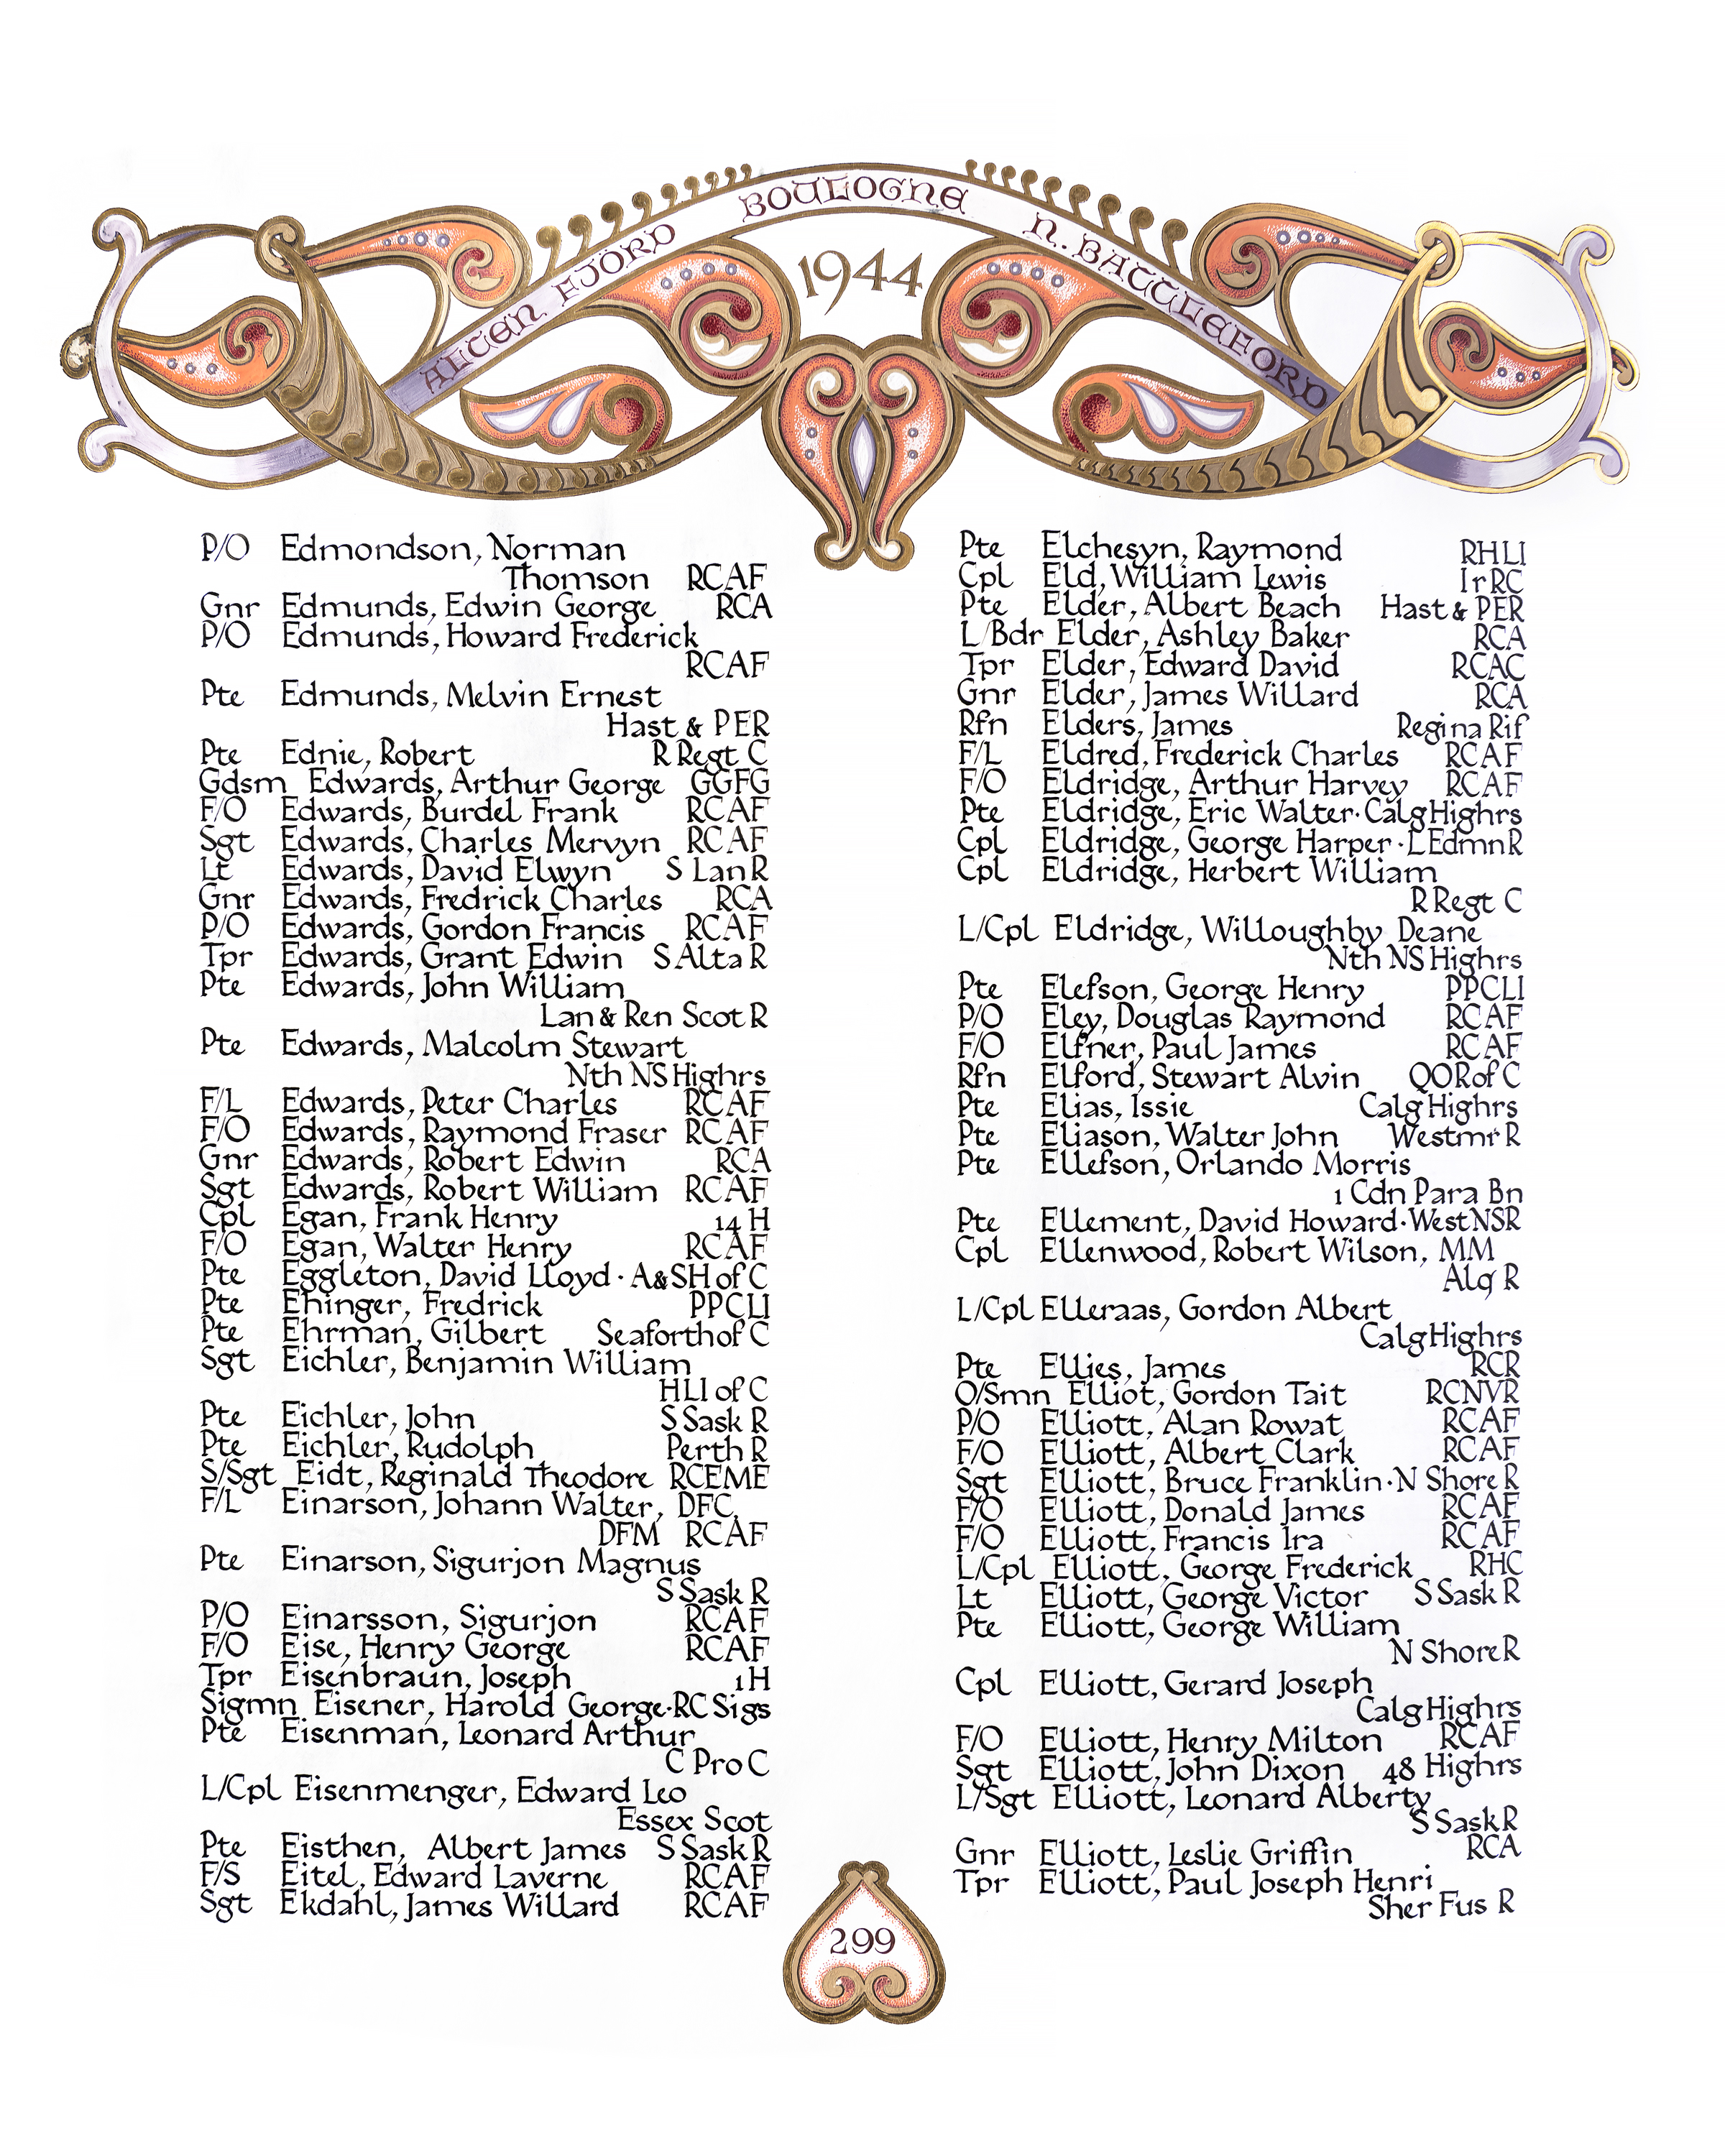 ALTEN FJÖRD BOULOGNE N. BATTLEFORD
1944
P/O Edmondson, Norman
Thomson RCAF
Gnr Edmunds, Edwin George RCA
P/O Edmunds, Howard Frederick
RCAF
Pte Edmunds, Melvin Ernest
Hast & PER
Pte Ednie, Robert R Regt C
Gdsm Edwards, Arthur George GGFG
F/O Edwards, Burdel Frank RCAF
Sgt Edwards, Charles Mervyn RCAF
Lt Edwards, David Elwyn S Lan R
Gnr Edwards, Fredrick Charles RCA
P/O Edwards, Gordon Francis RCAF
Tpr Edwards, Grant Edwin S Alta R
Pte Edwards, John William
Lan & Ren Scot R
Pte Edwards, Malcolm Stewart
Nth NS Highrs
F/L Edwards, Peter Charles RCAF
F/O Edwards, Raymond Fraser RCAF
Gnr Edwards, Robert Edwin RCA
Sgt Edwards, Robert William RCAF
Cpl Egan, Frank Henry 14 H
F/O Egan, Walter Henry RCAF
Pte Eggleton, David Lloyd · A&SH of C
Pte Ehinger, Fredrick PPCLI
Pte Ehrman, Gilbert Seaforth of C
Sgt Eichler, Benjamin William
HLI of C
Pte Eichler, John S Sask R
Pte Eichler, Rudolph Perth R
S/Sgt Eidt, Reginald Theodore RCEME
F/L Einarson, Johann Walter, DFC,
DFM RCAF
Pte Einarson, Sigurjon Magnus
S Sask R
P/O Einarsson, Sigurjon RCAF
F/O Eise, Henry George RCAF
Tpr Eisenbraun, Joseph 1 H
Sigmn Eisener, Harold George · RC Sigs
Pte Eisenman, Leonard Arthur
C Pro C
L/Cpl Eisenmenger, Edward Leo
Essex Scot
Pte Eisthen, Albert James S Sask R
F/S Eitel, Edward Laverne RCAF
Sgt Ekdahl, James Willard RCAF
Pte Elchesyn, Raymond RHLI
Cpl Eld, William Lewis Ir RC
Pte Elder, Albert Beach Hast & PER
L/Bdr Elder, Ashley Baker RCA
Tpr Elder, Edward David RCAC
Gnr Elder, James Willard RCA
Rfn Elders, James Regina Rif
F/L Eldred, Frederick Charles RCAF
F/O Eldridge, Arthur Harvey RCAF
Pte Eldridge, Eric Walter · Calg Highrs
Cpl Eldridge, George Harper · L Edmn R
Cpl Eldridge, Herbert William
R Regt C
L/Cpl Eldridge, Willoughby Deane
Nth NS Highrs
Pte Elefson, George Henry PPCLI
P/O Eley, Douglas Raymond RCAF
F/O Elfner, Paul James RCAF
Rfn Elford, Stewart Alvin QOR of C
Pte Elias, Issie Calg Highrs
Pte Eliason, Walter John Westmr R
Pte Ellefson, Orlando Morris
1 Cdn Para Bn
Pte Ellement, David Howard · West NSR
Cpl Ellenwood, Robert Wilson, MM
Alq R
L/Cpl Elleraas, Gordon Albert
Calg Highrs
Pte Ellies, James RCR
O/Smn Elliot, Gordon Tait RCNVR
P/O Elliott, Alan Rowat RCAF
F/O Elliott, Albert Clark RCAF
Sgt Elliott, Bruce Franklin · N Shore R
F/O Elliott, Donald James RCAF
F/O Elliott, Francis Ira RCAF
L/Cpl Elliott, George Frederick RHC
Lt Elliott, George Victor S Sask R
Pte Elliott, George William
N Shore R
Cpl Elliott, Gerard Joseph
Calg Highrs
F/O Elliott, Henry Milton RCAF
Sgt Elliott, John Dixon 48 Highrs
L/Sgt Elliott, Leonard Alberty
S Sask R
Gnr Elliott, Leslie Griffin RCA
Tpr Elliott, Paul Joseph Henri
Sher Fus R
299